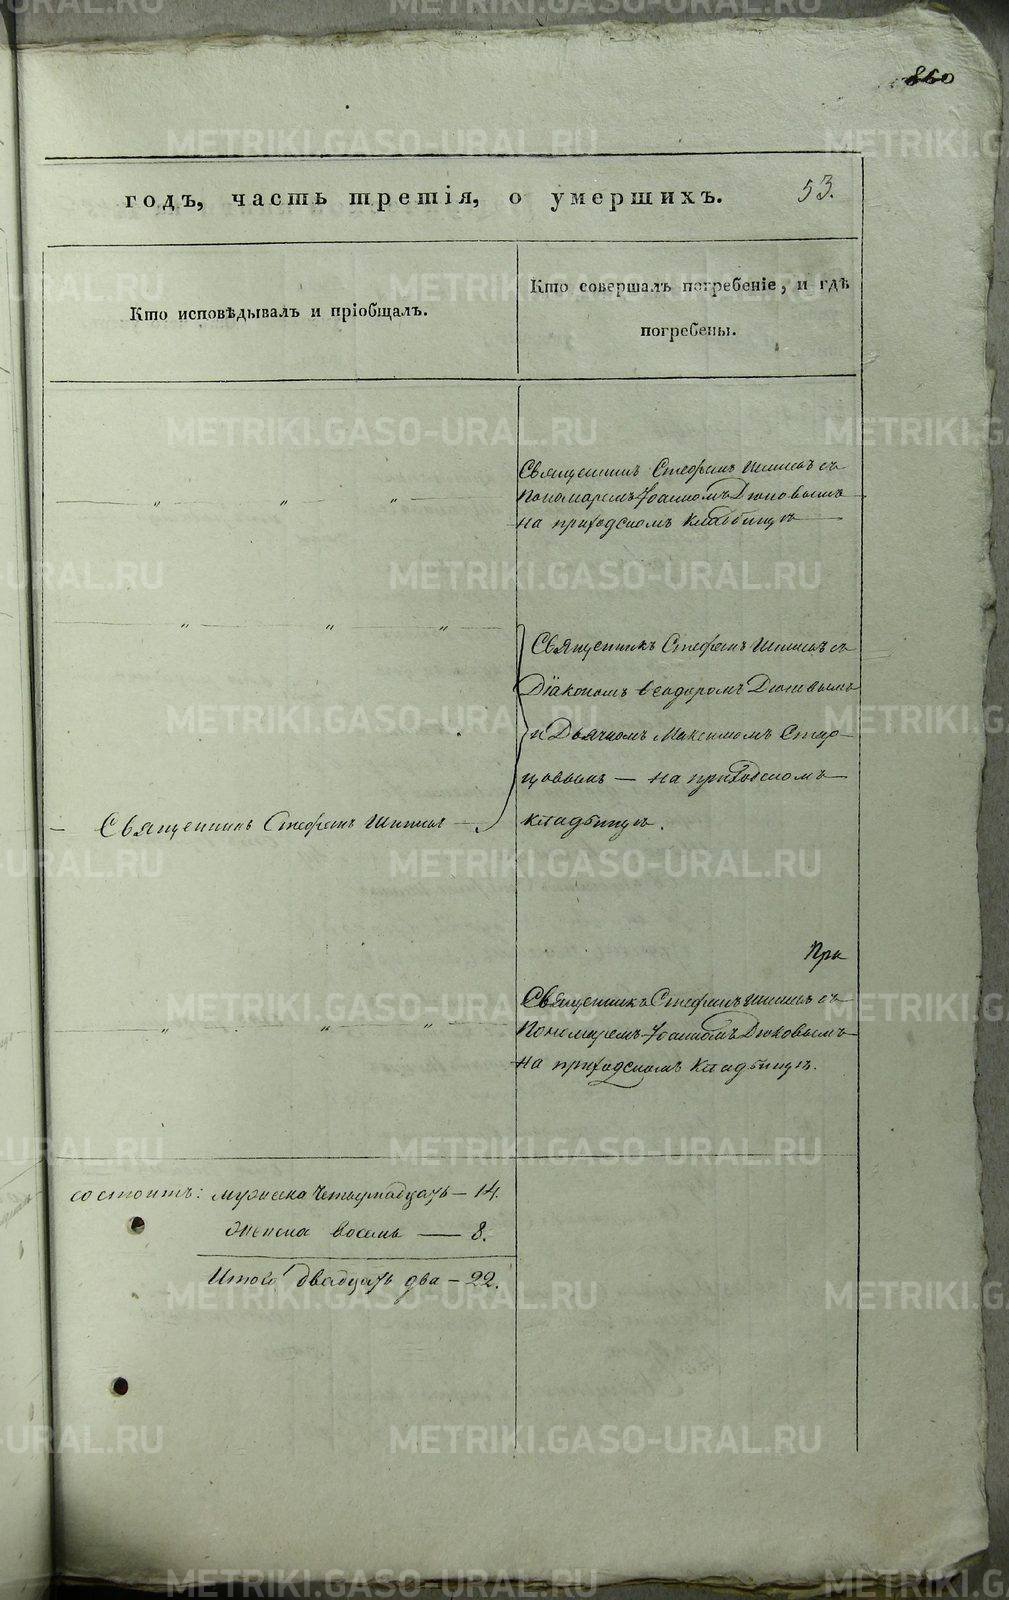 860
годъ, часть третія, о умершихъ. 53.
Кто исповѣдывалъ и пріобщалъ.
Кто совершалъ погребеніе, и гдѣ
погребены.
Священникъ Стефанъ съ
Пономаремъ Іоанномъ Дюковымъ
на приходскомъ кладбищѣ
Священникъ Стефанъ съ
Діакономъ Ѳеодоромъ
и Дьячкомъ Максимомъ Стар-
цовымъ — на приходскомъ
кладбищѣ.
— Священникъ Стефанъ —
При
Священникъ Стефанъ съ
Пономаремъ Іоанномъ Дюковымъ
на приходскомъ кладбищѣ.
состоитъ: мужеска четырнадцать — 14.
женска восемь — 8.
Итого двадцать два — 22.
METRIKI.GASO-URAL.RU